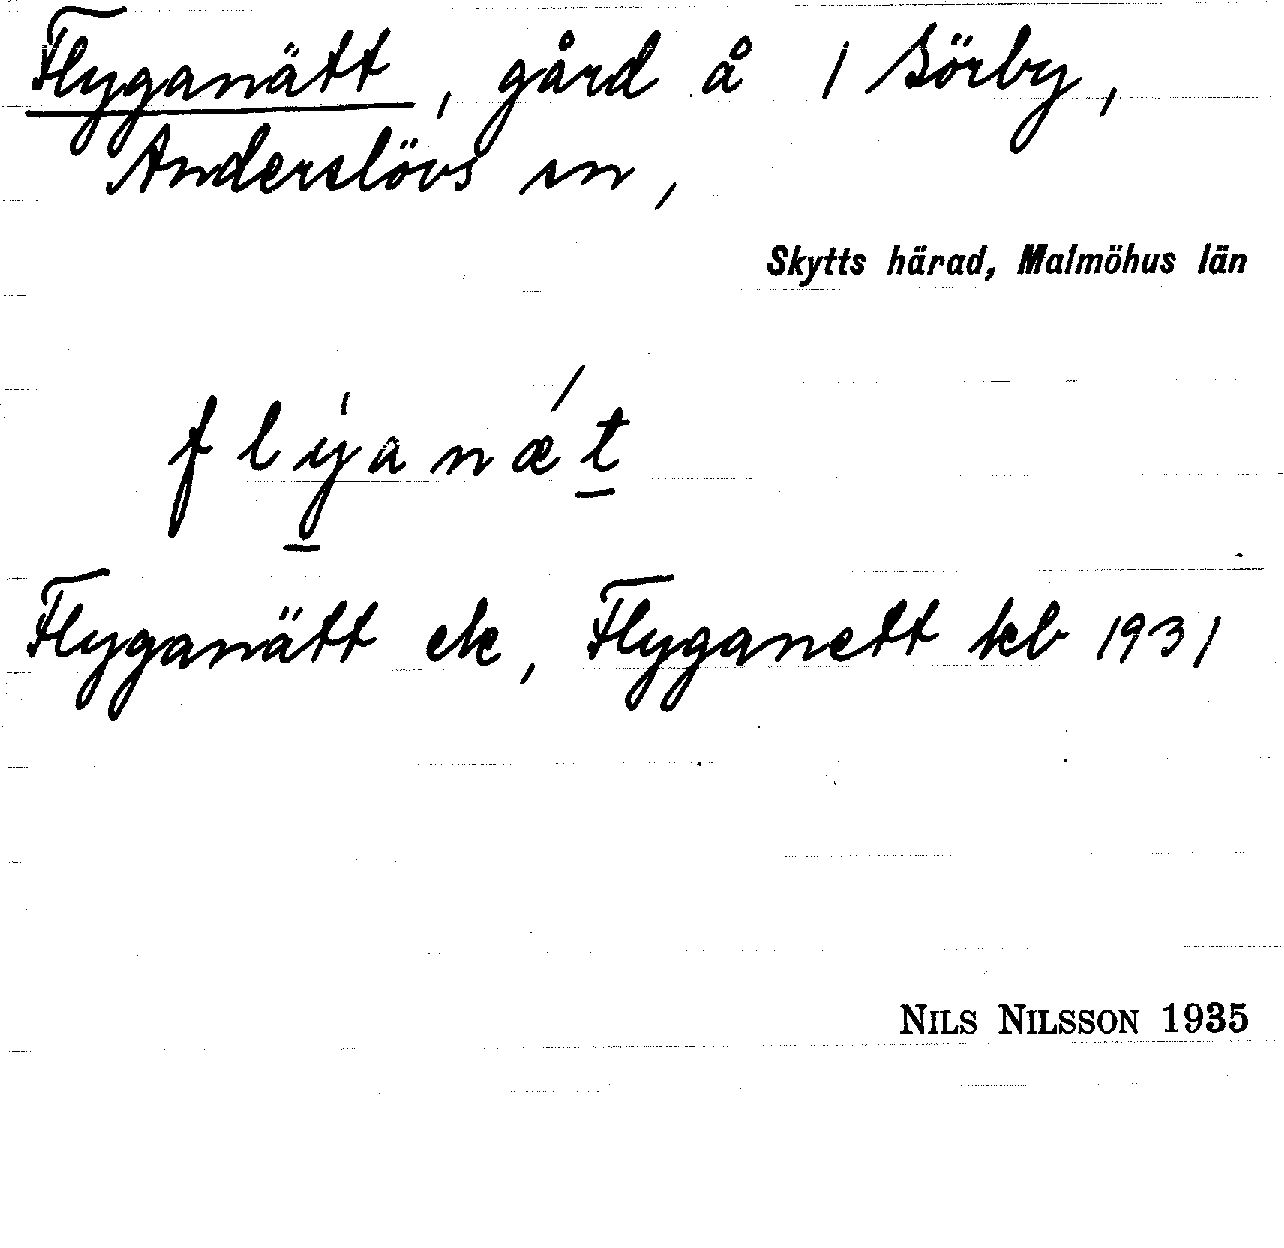 Flyganätt, gård å 1 Sörby,
Anderslövs sn,
Skytts härad, Malmöhus län
flýanǽt
Flyganätt ek, Flyganett kb 1931
NILS NILSSON 1935